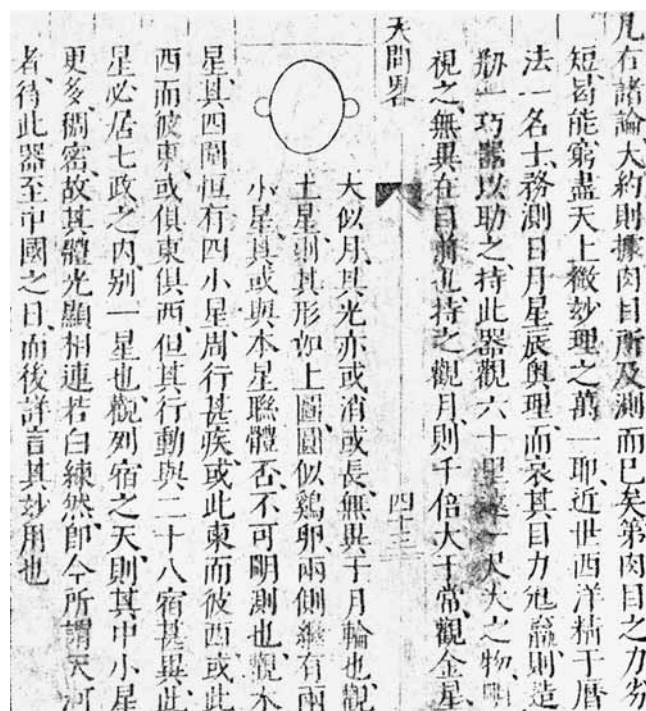 凡右諸論、大約則據肉目所及測而已矣、第肉目之力劣
短、曷能窮盡天上微妙理之萬一耶、近世西洋精于曆
法一名士、務測日月星辰奧理、而哀其目力尪羸、則造
刱一巧器以助之、持此器觀六十里遠一尺大之物、明
視之、無異在目前也、持之觀月、則千倍大于常、觀金星、
天問畧
四十三
大似月、其光亦或消或長、無異于月輪也、觀
土星、則其形如上圖、圓似鷄卵、兩側繼有兩
小星、其或與本星聯體否、不可明測也、觀木
星、其四圍恒有四小星、周行甚疾、或此東而彼西、或此
西而彼東、或俱東俱西、但其行動與二十八宿甚異、此
星必居七政之内、别一星也、觀列宿之天、則其中小星
更多、稠密、故其體光顯相連、若白練然、即今所謂天河
者、待此器至中國之日、而後詳言其妙用也